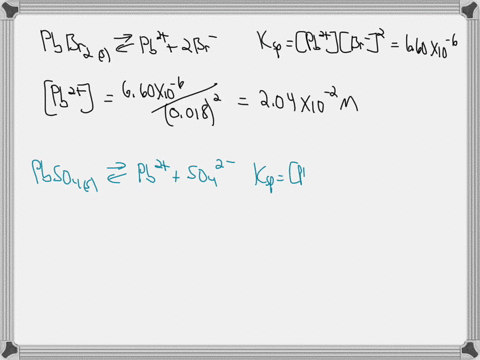 PbBr₂(s) ⇌ Pb²⁺ + 2Br⁻ Ksp = [Pb²⁺][Br⁻]² = 6.60 x 10⁻⁶
[Pb²⁺] = 6.60 x 10⁻⁶ / (0.018)² = 2.04 x 10⁻² M
PbSO₄(s) ⇌ Pb²⁺ + SO₄²⁻ Ksp = [P